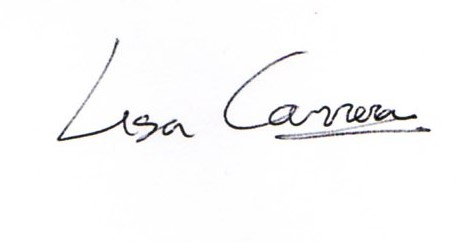 Lisa Carrera